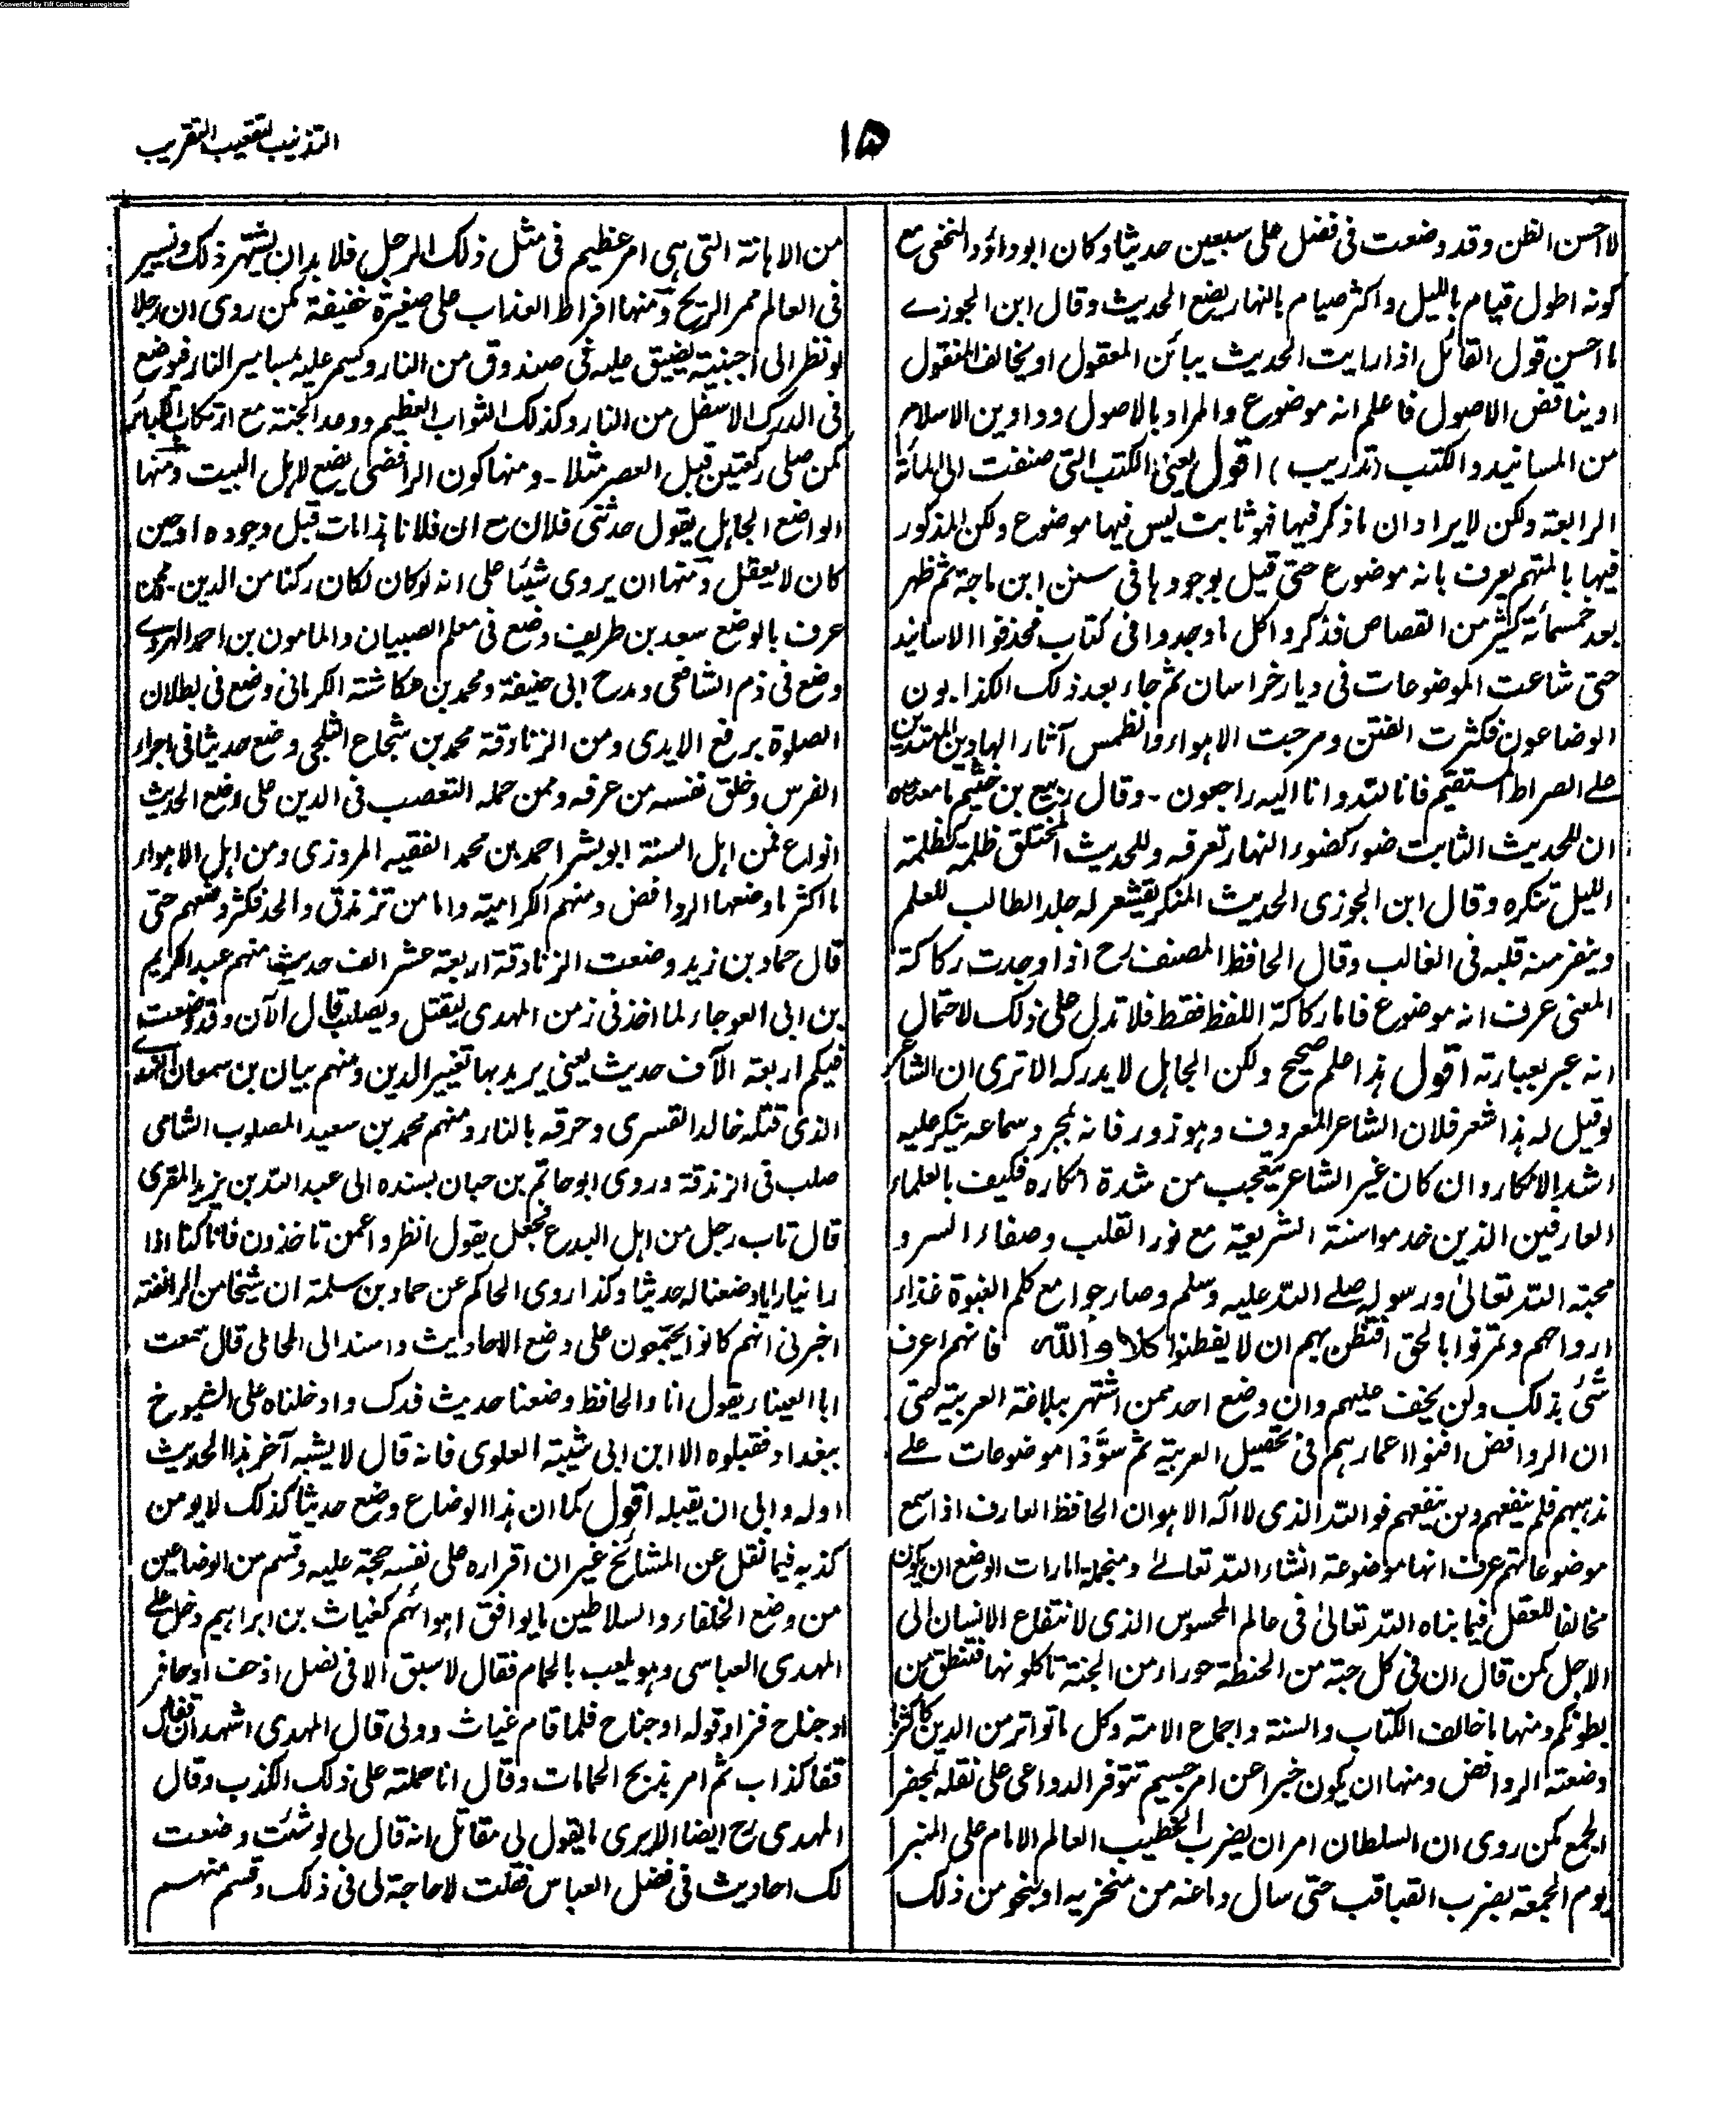 Converted by Tiff Combine - unregistered
التذنيب لتعقيب التقريب
١٥
لا احسن الظن وقد وضعت فى فضل على سبعين حديثا وكان ابو داؤد النخعى مع
كونه اطول قيام بالليل واكثر صيام بالنهار يضع الحديث وقال ابن الجوزے
ما احسن قول القائل اذا رايت الحديث يبائن المعقول او يخالف المنقول
او يناقض الاصول فاعلم انه موضوع والمراد بالاصول دواوين الاسلام
من المسانيد والكتب (تدريب) اقول يعنى الكتب التى صنفت الى المأة
الرابعة ولكن لا يراد ان ما ذكر فيها فهو ثابت ليس فيها موضوع ولكن المذكور
فيها بالمتهم يعرف بانه موضوع حتى قيل بوجودها فى سنن ابن ماجة ثم ظهر
بعد خمسمائة كثير من القصاص فذكروا كل ما وجدوا فى كتاب فحذفوا الاسانيد
حتى شاعت الموضوعات فى ديار خراسان ثم جاء بعد ذلك الكذابون
الوضاعون فكثرت الفتن ومرجت الاهواء وانطمس آثار الهادين المهتدين
علے الصراط المستقيم فانا لله وانا اليه راجعون - وقال ربيع بن خثيم
ان للحديث الثابت ضوء كضوء النهار تعرفه وللحديث المختلق ظلمة كظلمة
الليل تنكره وقال ابن الجوزى الحديث المنكر يقشعر له جلد الطالب للعلم
وينفر منه قلبه فى الغالب وقال الحافظ المصنف رح اذا وجدت ركاكة
المعنى عرف انه موضوع فاما ركاكة اللفظ فقط فلا تدل على ذلك لاحتمال
انه عبر بعبارته اقول هذا علم صحيح ولكن الجاهل لا يدركه الا ترى ان الشاعر
لو قيل له هذا شعر فلان الشاعر المعروف وهو زور فانه بمجرد سماعه ينكر عليه
اشد الانكار وان كان غير الشاعر يتعجب من شدة انكاره فكيف بالعلماء
العارفين الذين خدموا سنة الشريعة مع نور القلب وصفاء السر و
محبة الله تعالىٰ ورسوله صلے الله عليه وسلم وصار جوامع كلم النبوة غذاء
ارواحهم وتمرنوا بالحق افتظن بهم ان لا يفطنوا كلا والله فانهم اعرف
شئ بذلك ولن يخف عليهم وان وضع احد ممن اشتهر ببلاغة العربية حتى
ان الروافض افنوا اعمارهم فى تحصيل العربية ثم سوّدوا موضوعات علے
مذهبهم فلم ينفعهم ولن ينفعهم فوالله الذى لا اله الا هو ان الحافظ العارف اذا سمع
موضوعاتهم عرف انها موضوعة انشاء الله تعالےٰ ومنجملة امارات الوضع ان يكون
مخالفا للعقل فيما بناه الله تعالىٰ فى عالم المحسوس الذى لانتفاع الانسان الى
الاجل كمن قال ان فى كل حبة من الحنطة حوراء من الجنة تاكلونها فتنطق من
بطونكم ومنها ما خالف الكتاب والسنة واجماع الامة وكل ما تواتر من الدين كاكثر
ما وضعته الروافض ومنها ان يكون خبرا عن امر جسيم تتوفر الدواعى على نقله بمحضر
الجمع كمن روى ان السلطان امر ان يضرب الخطيب العالم الامام على المنبر
يوم الجمعة بضرب القباقب حتى سال دماغه من منخريه او بنحو من ذلك
من الاهانة التى هى امر عظيم فى مثل ذلك الرجل فلا بد ان يشتهر ذلك ويسير
فى العالم ممر الريح ومنها افراط العذاب على صغيرة خفيفة كمن روى ان رجلا
لو نظر الى اجنبية يضيق عليه فى صندوق من النار ويسمر عليه بمسامير النار فوضع
فى الدرك الاسفل من النار وكذلك الثواب العظيم ووعد الجنة مع ارتكاب الكبائر
كمن صلى ركعتين قبل العصر مثلا - ومنها كون الرافضى يضع لاهل البيت ومنها
الواضع الجاهل يقول حدثنى فلان مع ان فلانا هذا مات قبل وجوده او حين
كان لا يعقل ومنها ان يروى شيئا على انه لو كان لكان ركنا من الدين - فممن
عرف بالوضع سعد بن طريف وضع فى معلم الصبيان والمامون بن احمد الهروے
وضع فى ذم الشافعى ومدح ابى حنيفة ومحمد بن عكاشة الكرمانى وضع فى بطلان
الصلوة برفع الايدى ومن الزنادقة محمد بن شجاع الثلجى وضع حديثا فى اجراء
الفرس وخلق نفسه من عرقه وممن حمله التعصب فى الدين على وضع الحديث
انواع فمن اهل السنة ابو بشر احمد بن محمد الفقيه المروزى ومن اهل الاهواء
ما اكثر ما وضعها الروافض ومنهم الكرامية واما من تزندق والحد فكثر وضعهم حتى
قال حماد بن زيد وضعت الزنادقة اربعة عشر الف حديث منهم عبد الكريم
بن ابى العوجاء لما اخذ فى زمن المهدى ليقتل ويصلب قال الآن وقد وضعت
فيكم اربعة الآف حديث يعنى يريد بها تغيير الدين ومنهم بيان بن سمعان النهدے
الذى قتله خالد القسرى وحرقه بالنار ومنهم محمد بن سعيد المصلوب الشامى
صلب فى الزندقة وروى ابو حاتم بن حبان بسنده الى عبد الله بن يزيد المقرى
قال تاب رجل من اهل البدع فجعل يقول انظروا عمن تاخذون فانا كنا اذا
راينا رايا وضعنا له حديثا وكذا روى الحاكم عن حماد بن سلمة ان شيخا من الرافضة
اخبرنى انهم كانوا يجتمعون على وضع الاحاديث واسند الى المحاملى قال سمعت
ابا العيناء يقول انا والجاحظ وضعنا حديث فدك وادخلناه على الشيوخ
ببغداد فقبلوه الا ابن ابى شيبة العلوى فانه قال لا يشبه آخر هذا الحديث
اوله وابى ان يقبله اقول كما ان هذا الوضاع وضع حديثا كذلك لا يومن
كذبه فيما نقل عن المشائخ غير ان اقراره على نفسه حجة عليه وقسم من الوضاعين
من وضع الخلفاء والسلاطين ما يوافق اهوائهم كغياث بن ابراهيم دخل علے
المهدى العباسى وهو يلعب بالحمام فقال لا سبق الا فى نصل او خف او حافر
او جناح فزاد قوله او جناح فلما قام غياث وولى قال المهدى اشهد ان قفاك
قفا كذاب ثم امر بذبح الحمامات وقال انا حملته على ذلك الكذب وقال
المهدى رح ايضا الا يرى ما يقول لى مقاتل انه قال لى لو شئت وضعت
لك احاديث فى فضل العباس فقلت لا حاجة لى فى ذلك وقسم منهم